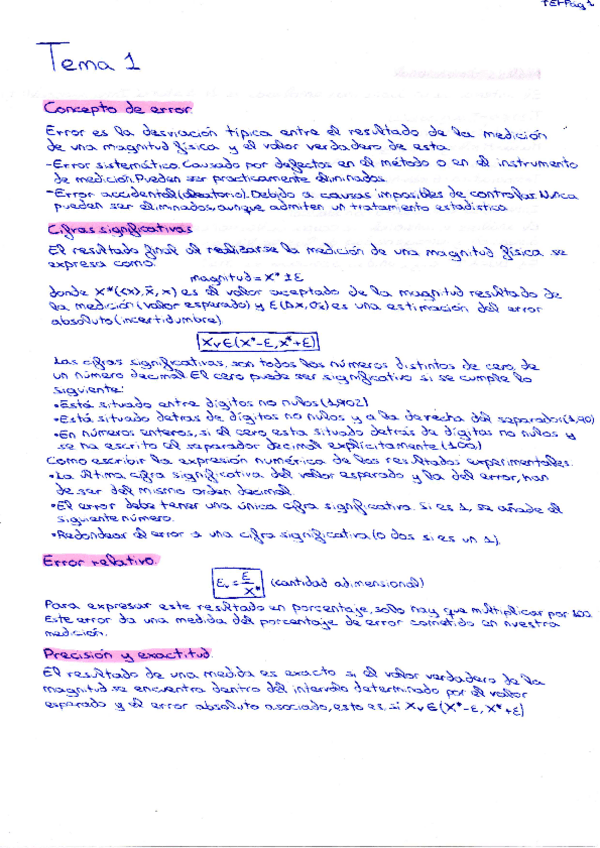 TE1-Pág 1
Tema 1
Concepto de error
Error es la desviación típica entre el resultado de la medición
de una magnitud física y el valor verdadero de esta.
-Error sistemático. Causado por defectos en el método o en el instrumento
de medición. Pueden ser prácticamente eliminados.
-Error accidental (aleatorio). Debido a causas imposibles de controlar. Nunca
pueden ser eliminados, aunque admiten un tratamiento estadístico.
Cifras significativas
El resultado final al realizarse la medición de una magnitud física se
expresa como:
magnitud = X* ± ε
donde X*(⟨x⟩, x̄, x) es el valor aceptado de la magnitud resultado de
la medición (valor esperado) y ε(Δx, σx) es una estimación del error
absoluto (incertidumbre)
Xv ∈ (X*-ε, X*+ε)
Las cifras significativas, son todos los números distintos de cero, de
un número decimal. El cero puede ser significativo si se cumple lo
siguiente:
•Está situado entre dígitos no nulos (1,902)
•Está situado detrás de dígitos no nulos y a la derecha del separador (1,90)
•En números enteros, si el cero esta situado detrás de dígitos no nulos y
se ha escrito el separador decimal explícitamente (100,)
Como escribir la expresión numérica de los resultados experimentales:
•La última cifra significativa del valor esperado y la del error, han
de ser del mismo orden decimal.
•El error debe tener una única cifra significativa. Si es 1, se añade el
siguiente número.
•Redondear el error a una cifra significativa (o dos si es un 1).
Error relativo.
Ev = ε/X* (cantidad adimensional)
Para expresar este resultado en porcentaje, solo hay que multiplicar por 100
Este error da una medida del porcentaje de error cometido en nuestra
medición.
Precisión y exactitud.
El resultado de una medida es exacto si el valor verdadero de la
magnitud se encuentra dentro del intervalo determinado por el valor
esperado y el error absoluto asociado, esto es, si Xv ∈ (X*-ε, X*+ε)